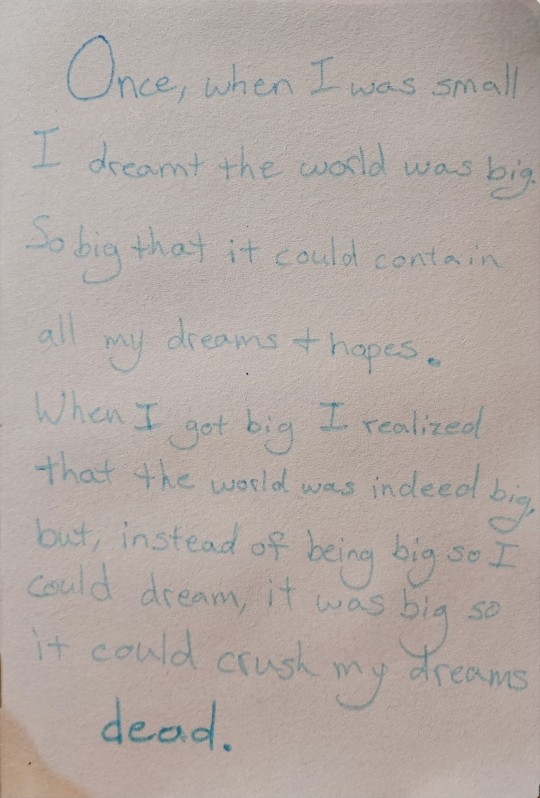 Once, when I was small
I dreamt the world was big.
So big that it could contain
all my dreams + hopes.
When I got big I realized
that the world was indeed big,
but, instead of being big so I
could dream, it was big so
it could crush my dreams
dead.